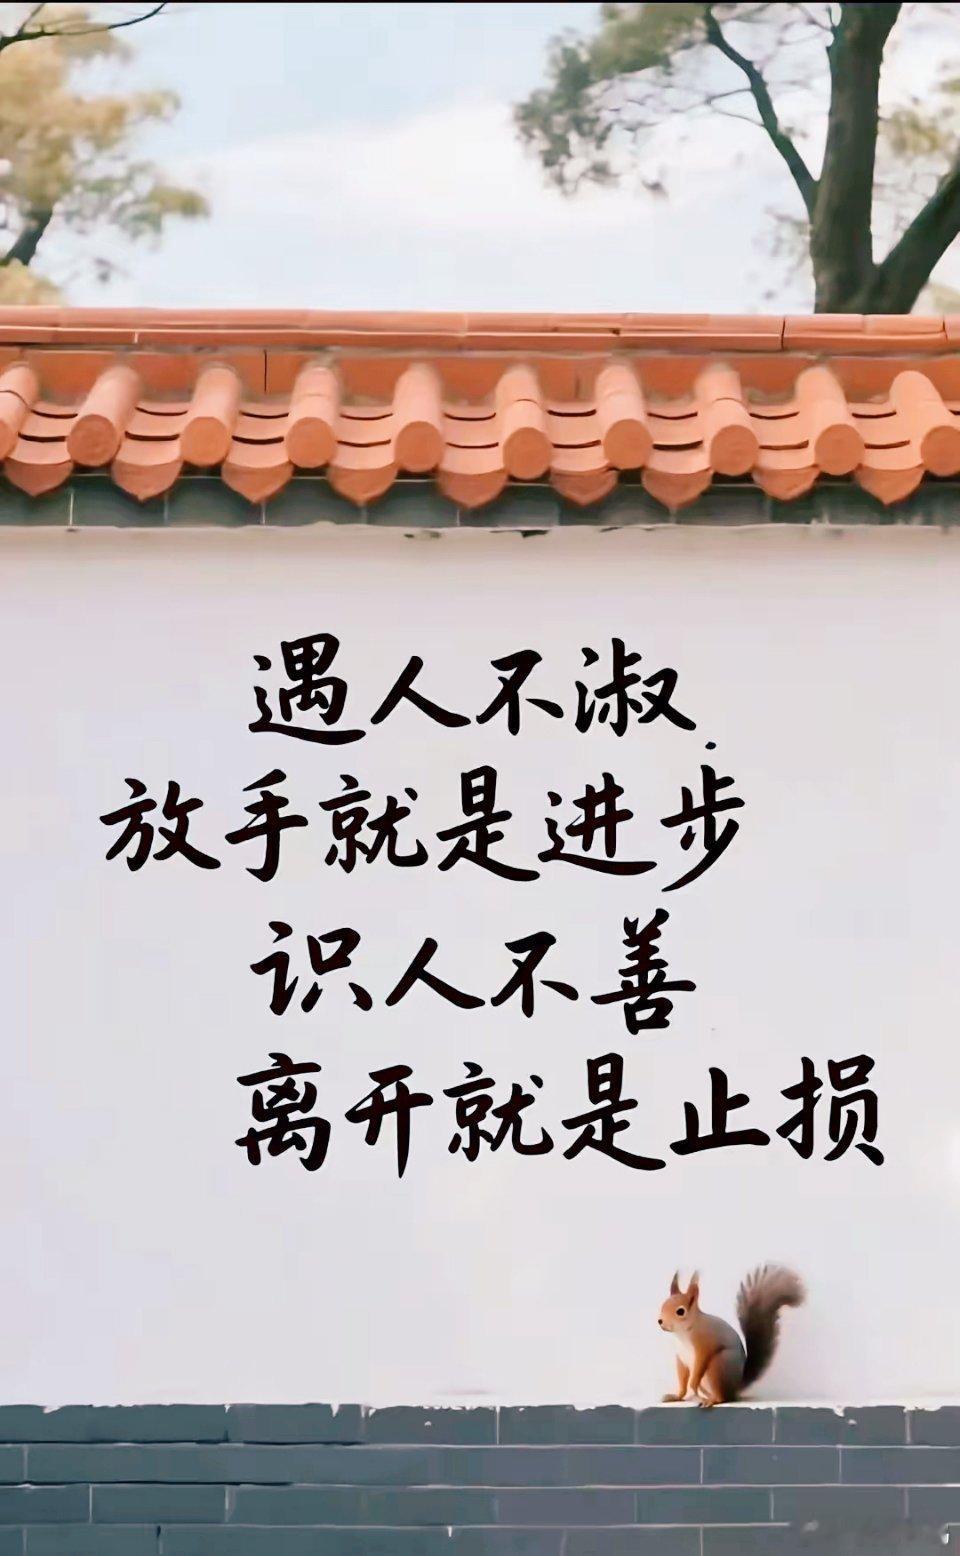 遇人不淑
放手就是进步
识人不善
离开就是止损